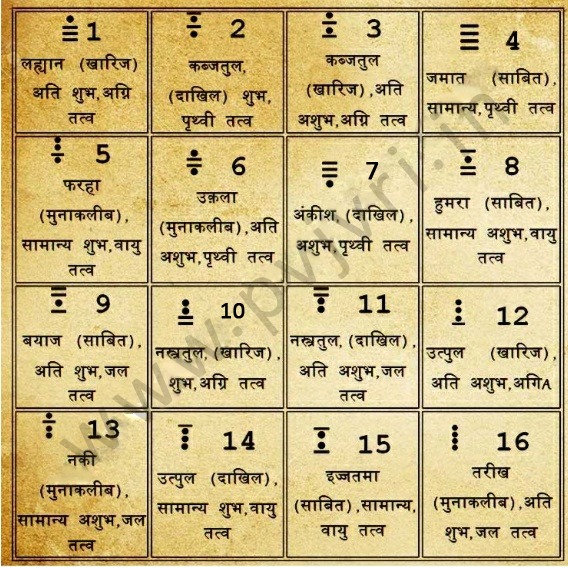 1
लह्यान (खारिज)
अति शुभ,अग्नि
तत्व
2
कब्जतुल,
(दाखिल) शुभ,
पृथ्वी तत्व
3
कब्जतुल
(खारिज),अति
अशुभ,अग्नि तत्व
4
जमात (साबित),
सामान्य,पृथ्वी तत्व
5
फरहा
(मुनाकलीब),
सामान्य शुभ,वायु
तत्व
6
उक़ला
(मुनाकलीब),अति
अशुभ,पृथ्वी तत्व
7
अंकीश,(दाखिल),
अशुभ,पृथ्वी तत्व
8
हुमरा (साबित),
सामान्य अशुभ,वायु
तत्व
9
बयाज (साबित),
अति शुभ,जल
तत्व
10
नस्त्रतुल,(खारिज),
शुभ,अग्नि तत्व
11
नस्त्रतुल,(दाखिल),
अति अशुभ,जल
तत्व
12
उत्पुल (खारिज),
अति अशुभ,अगिA
13
नकी
(मुनाकलीब),
सामान्य अशुभ,जल
तत्व
14
उत्पुल (दाखिल),
सामान्य शुभ,वायु
तत्व
15
इज्जतमा
(साबित),सामान्य,
वायु तत्व
16
तरीख
(मुनाकलीब),अति
शुभ,जल तत्व
www.pvjvri.in